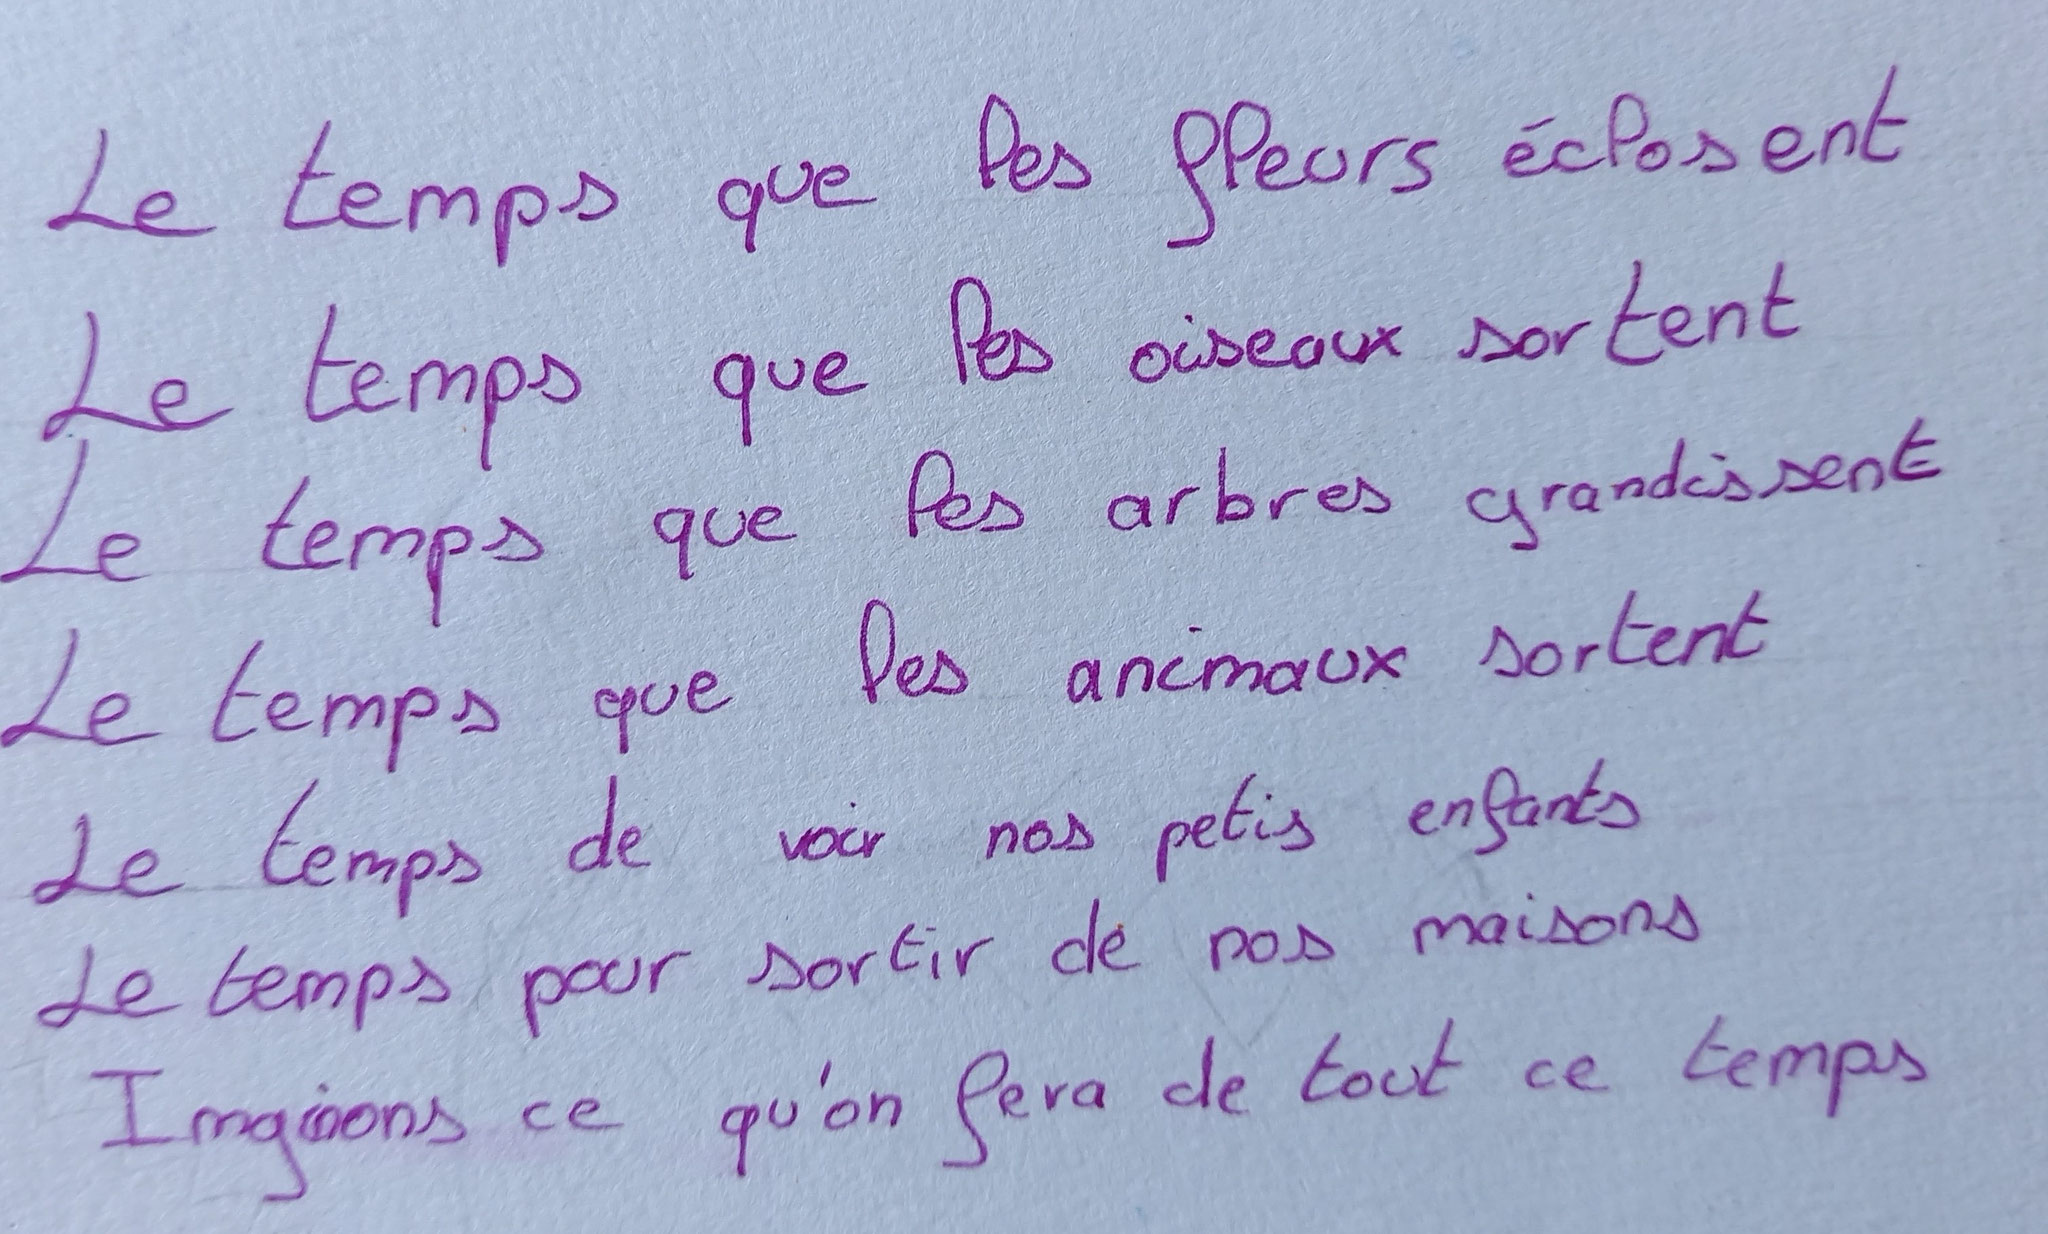 Le temps que les fleurs éclosent
Le temps que les oiseaux sortent
Le temps que les arbres grandissent
Le temps que les animaux sortent
Le temps de voir nos petis enfants
Le temps pour sortir de nos maisons
ce qu'on fera de tout ce temps